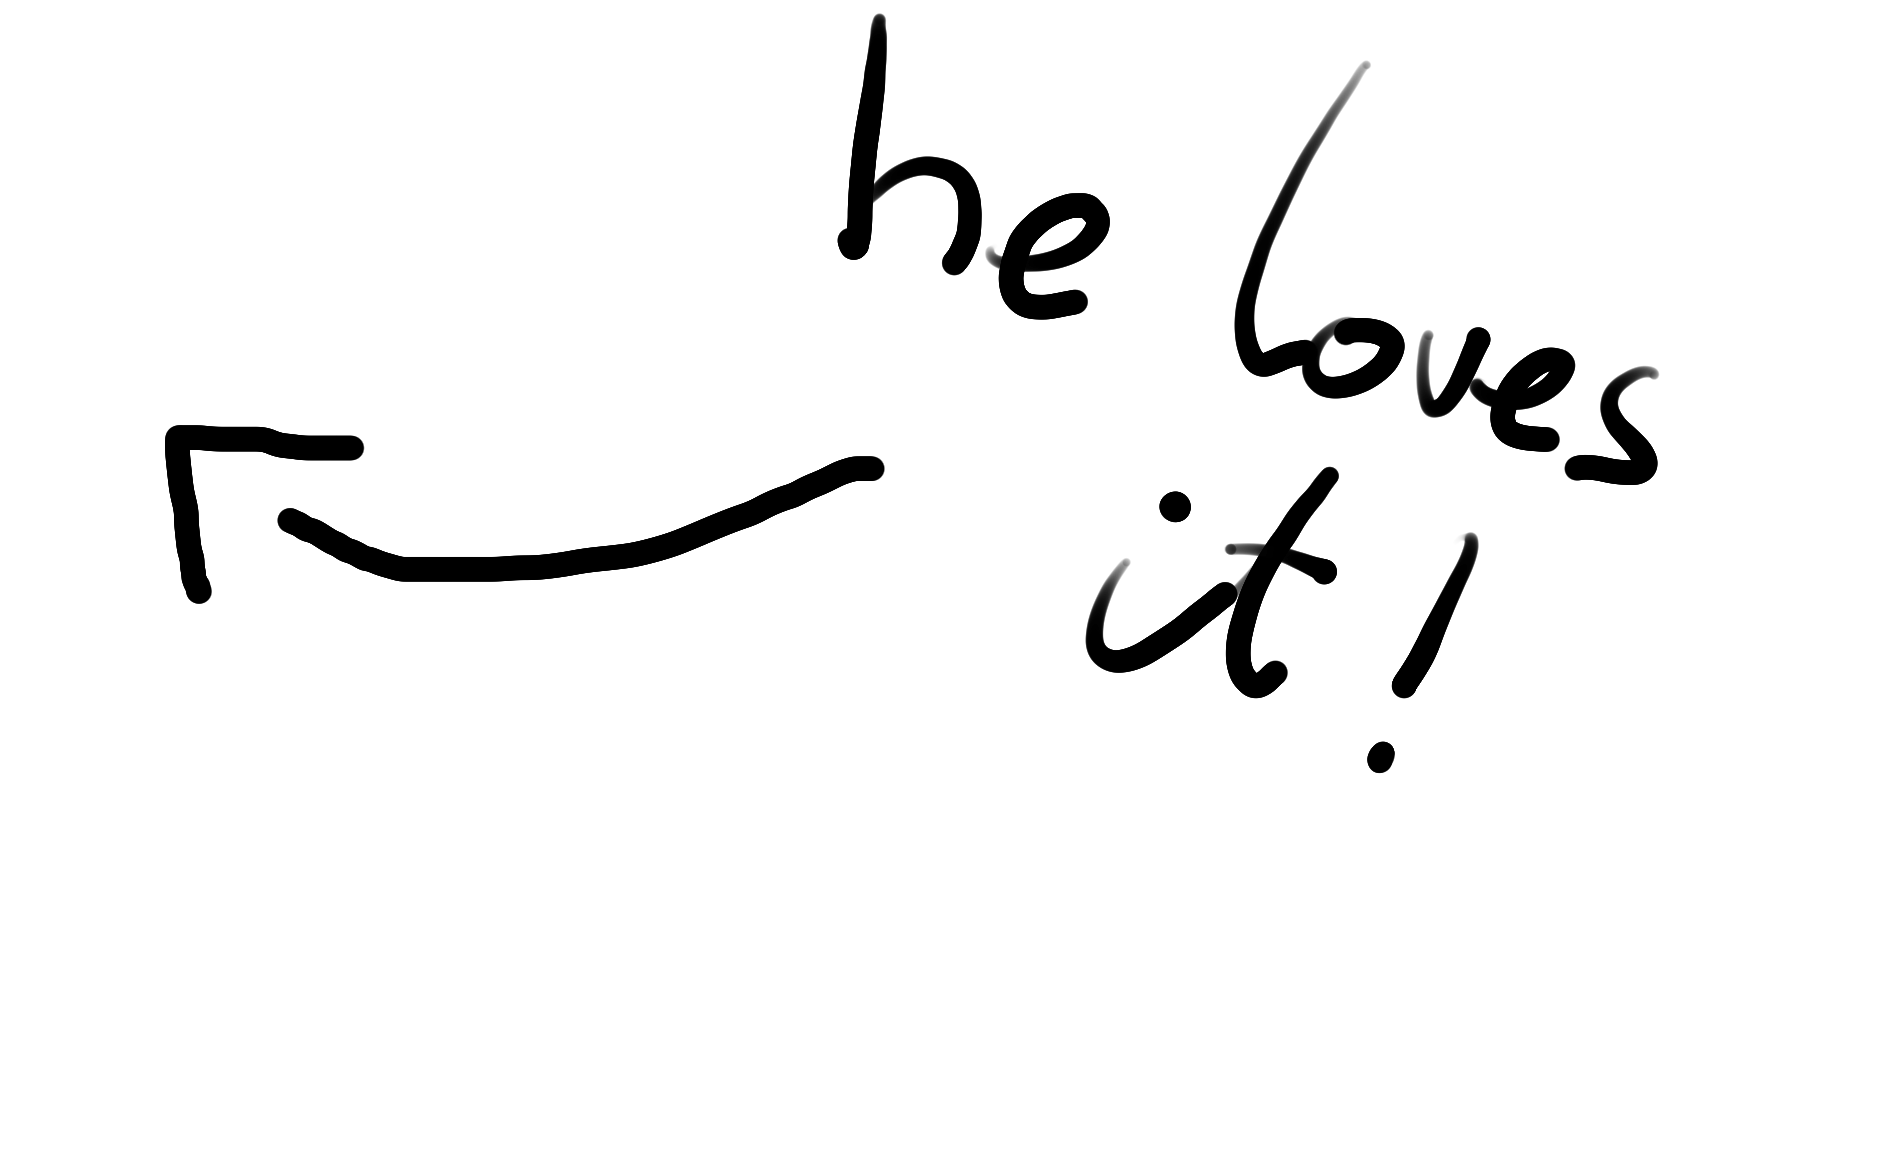 he loves
it!